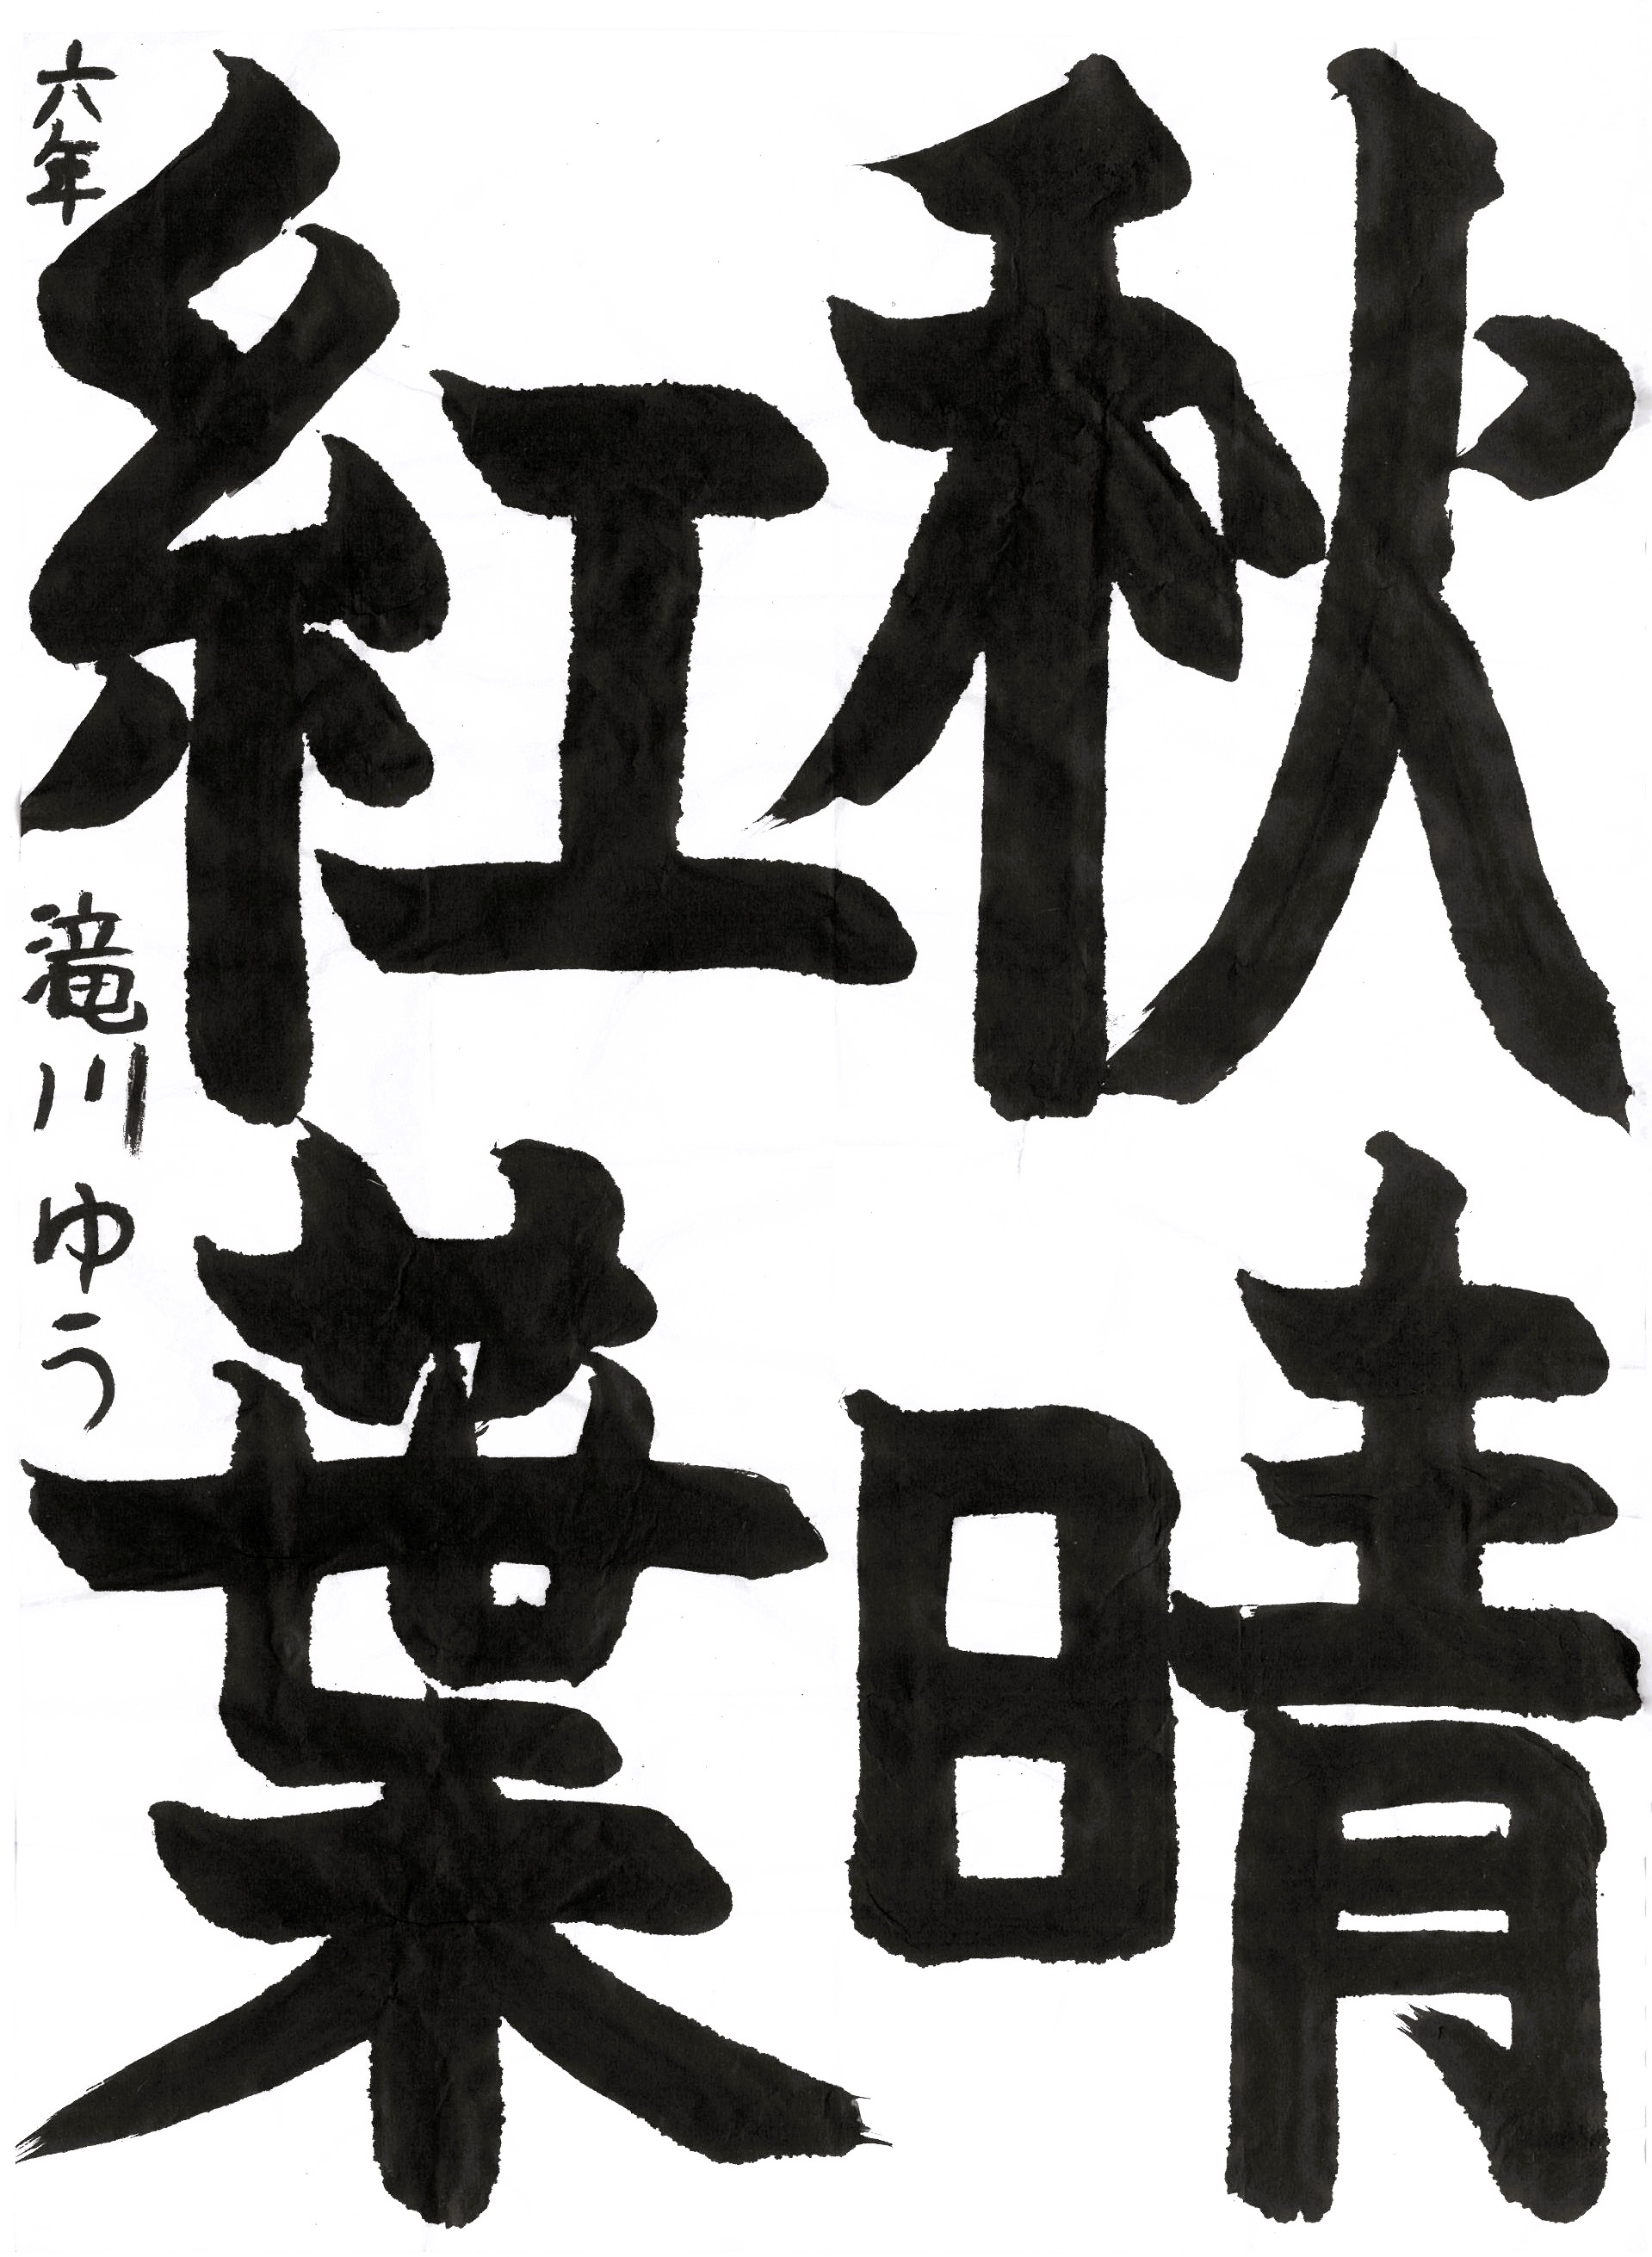 秋晴
紅葉
六年 滝川ゆう